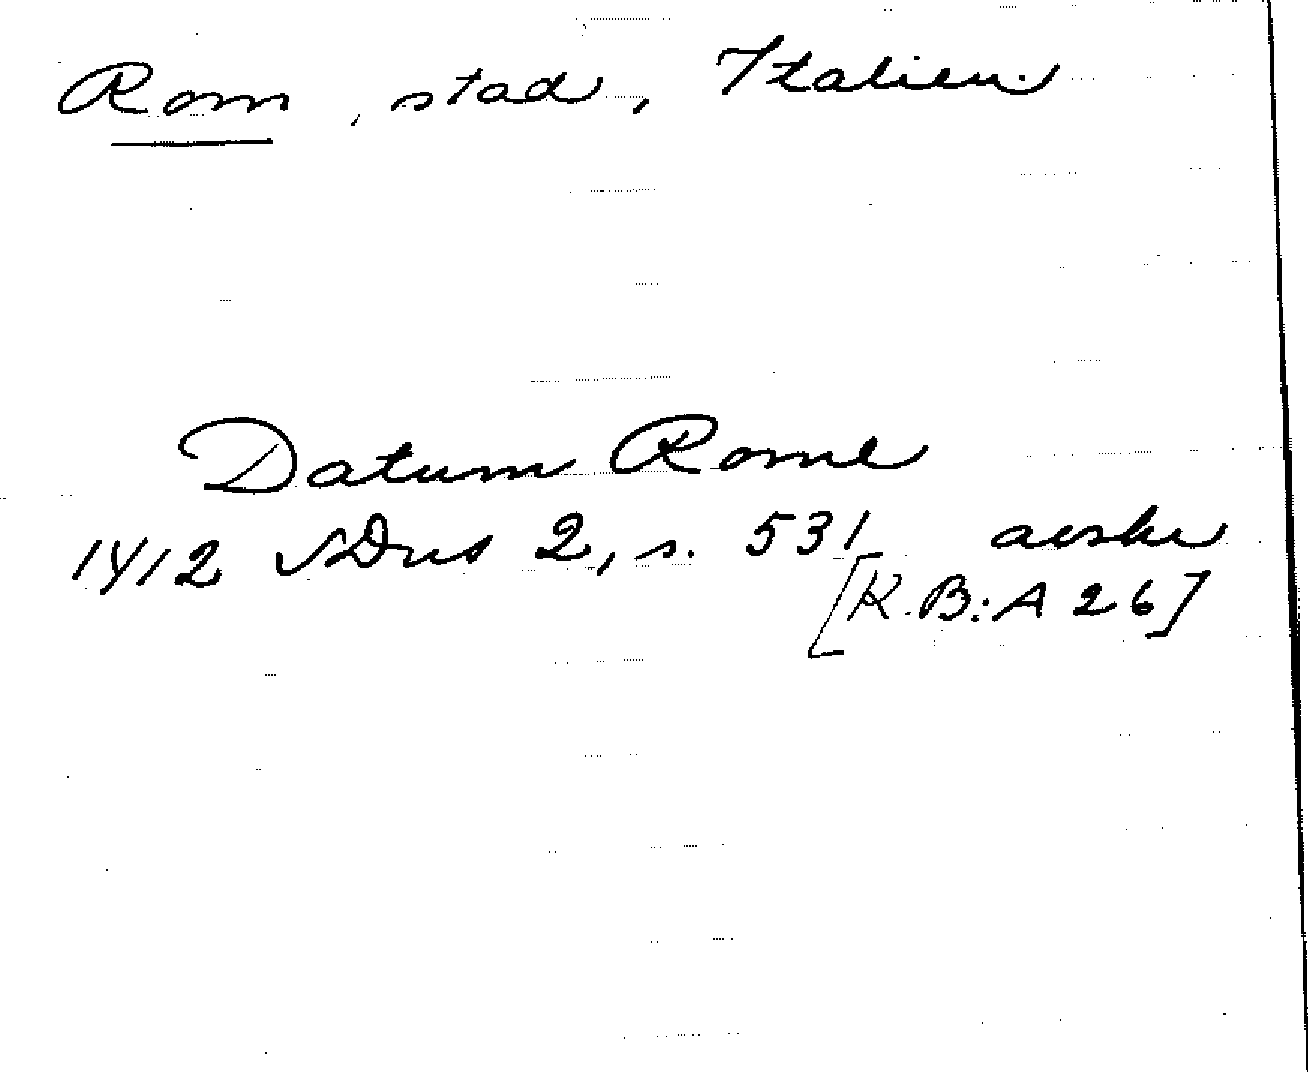 Rom, stad, Italien.
Datum Rome
1412 SDns 2, s. 531 avskr
[K.B:A 26]